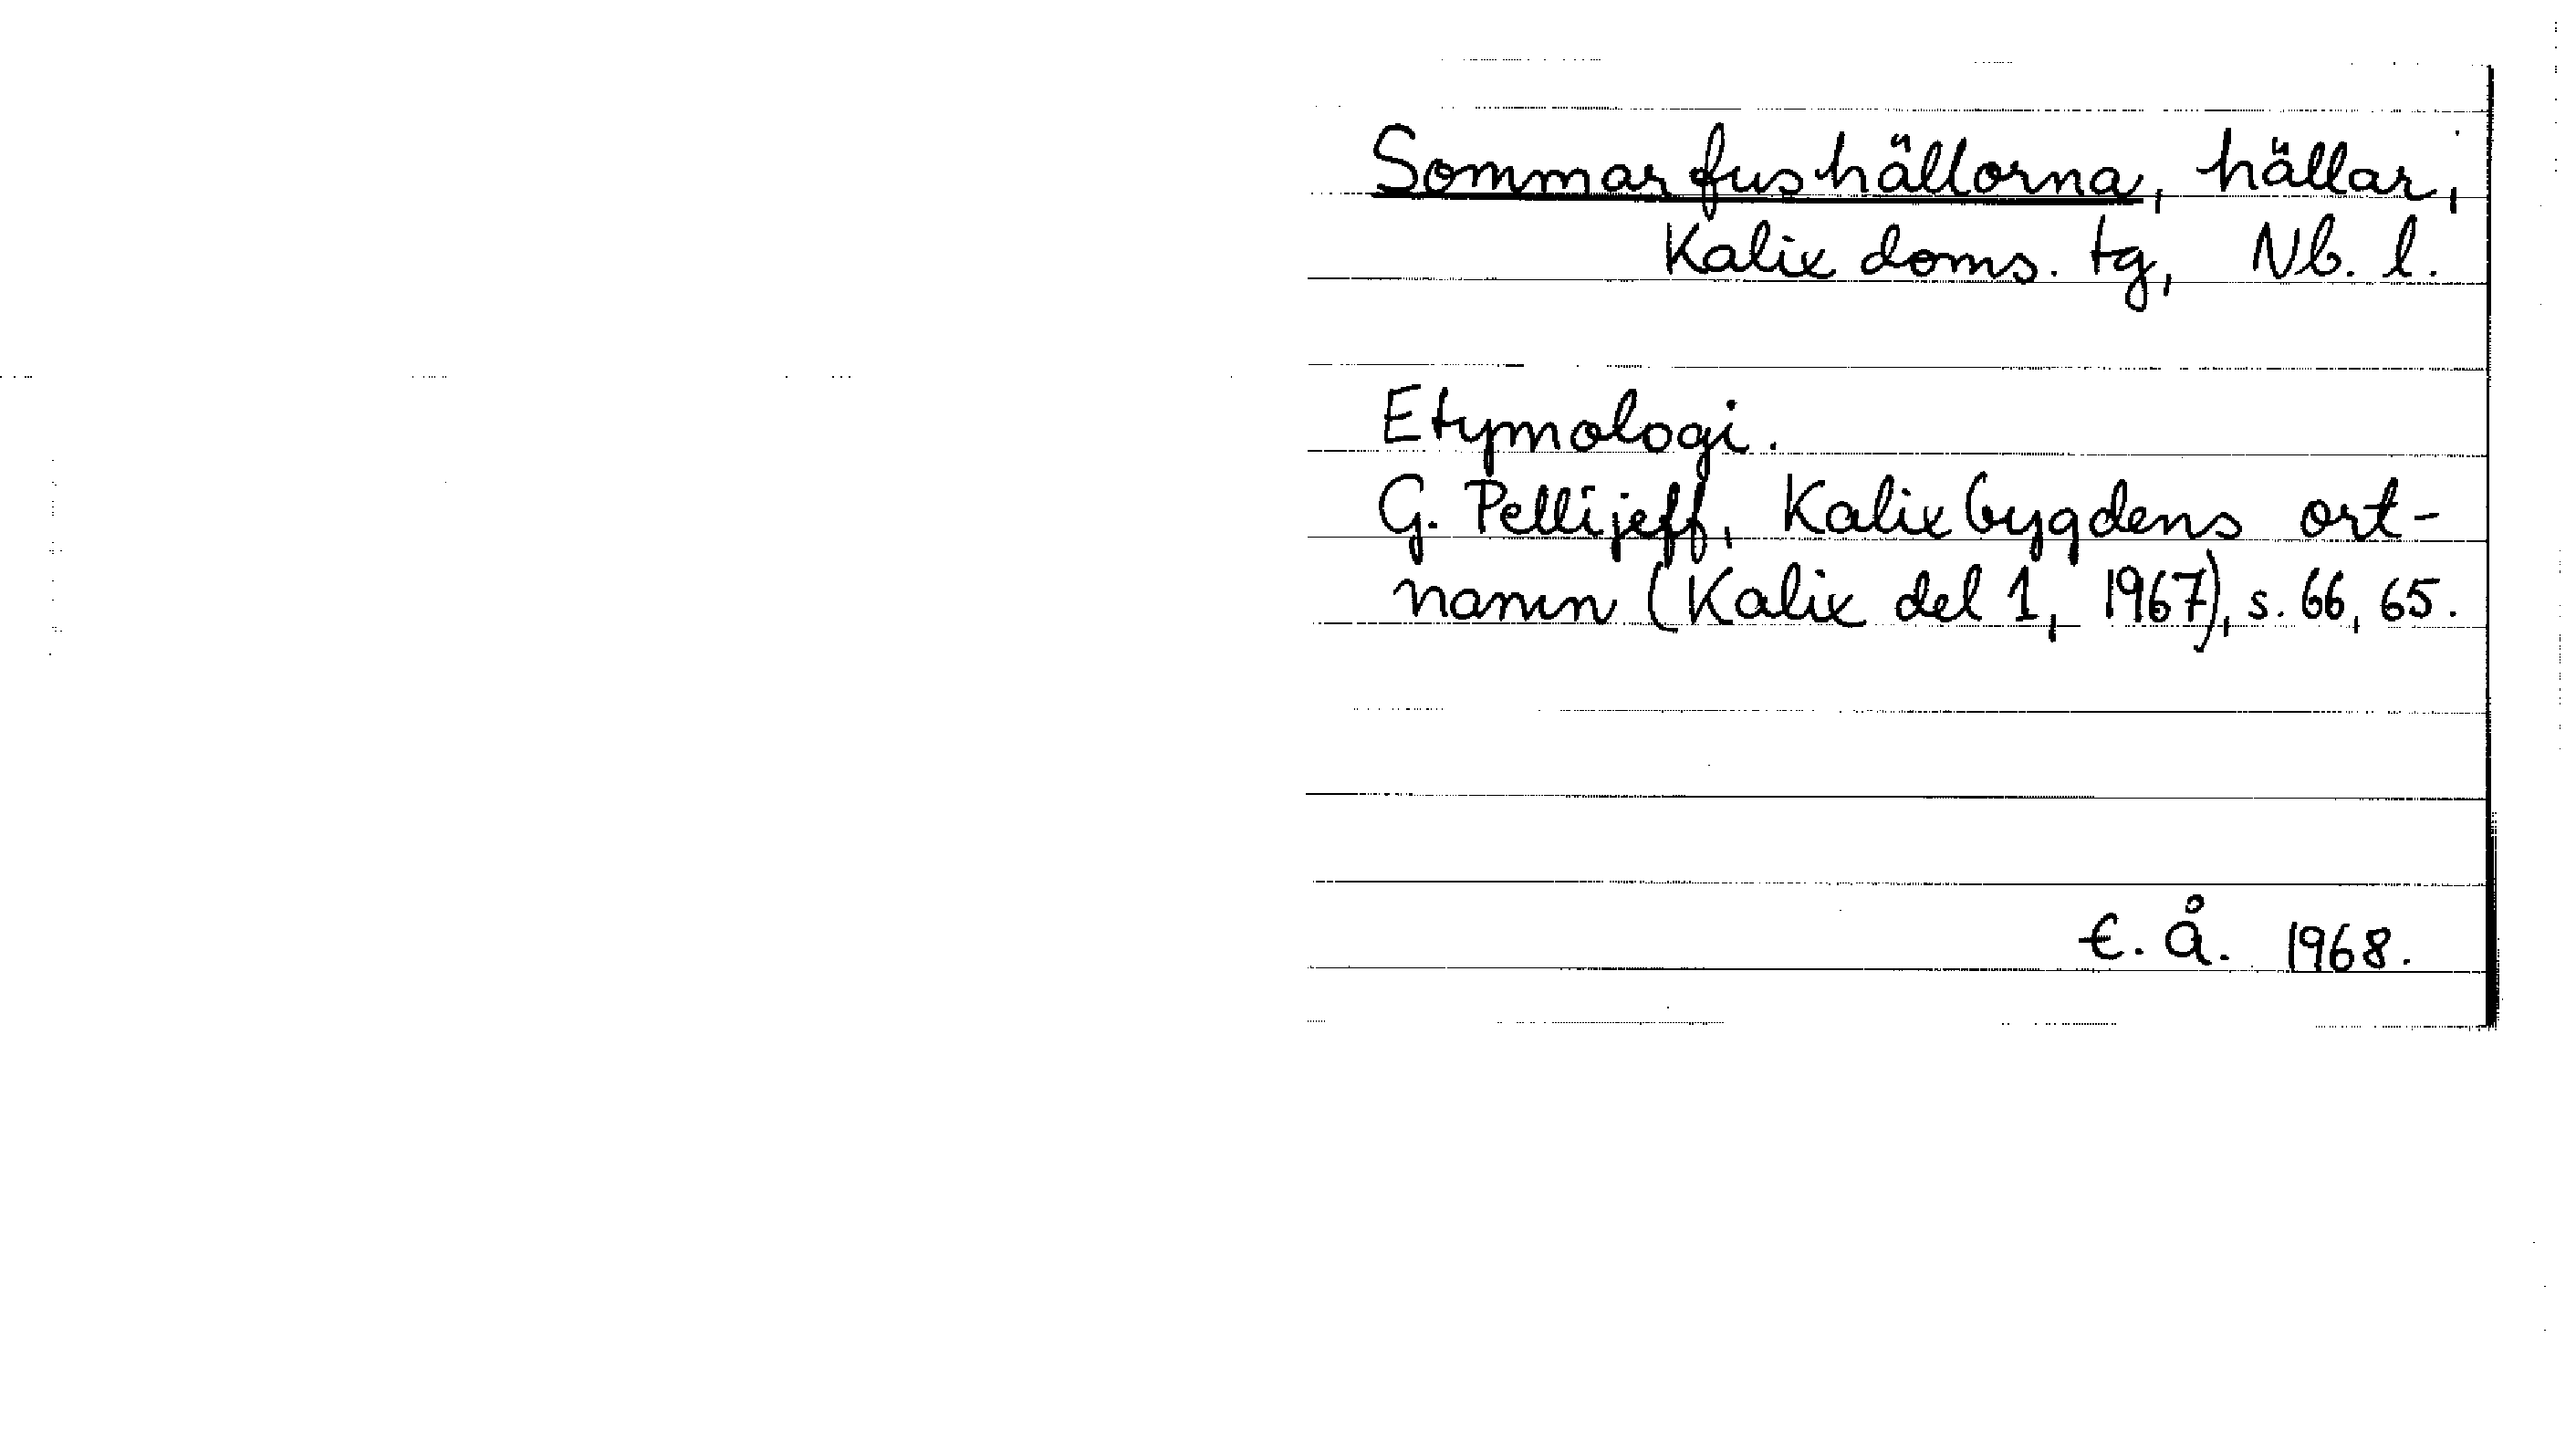 Sommarfushällorna, hällar,
Kalix doms. tg, Nb. l.
Etymologi.
G. Pellijeff, Kalixbygdens ort-
namn (Kalix del 1, 1967), s. 66, 65.
E. Å. 1968.